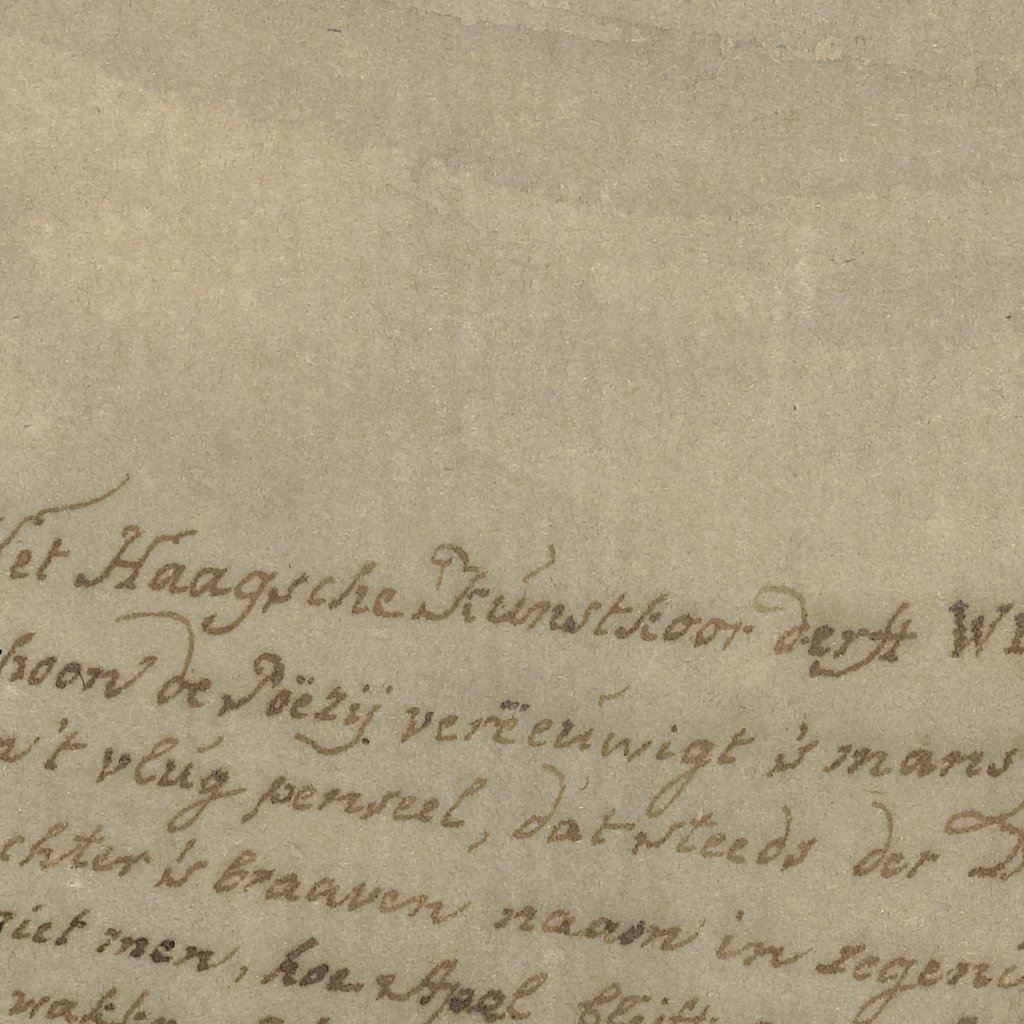 Het Haagsche Kúnstkoor derft
de Poëzij verëeúwigt 's mans
't vlúg penseel, dat steeds der
's braaven naam in zegen
men, hoe Apel